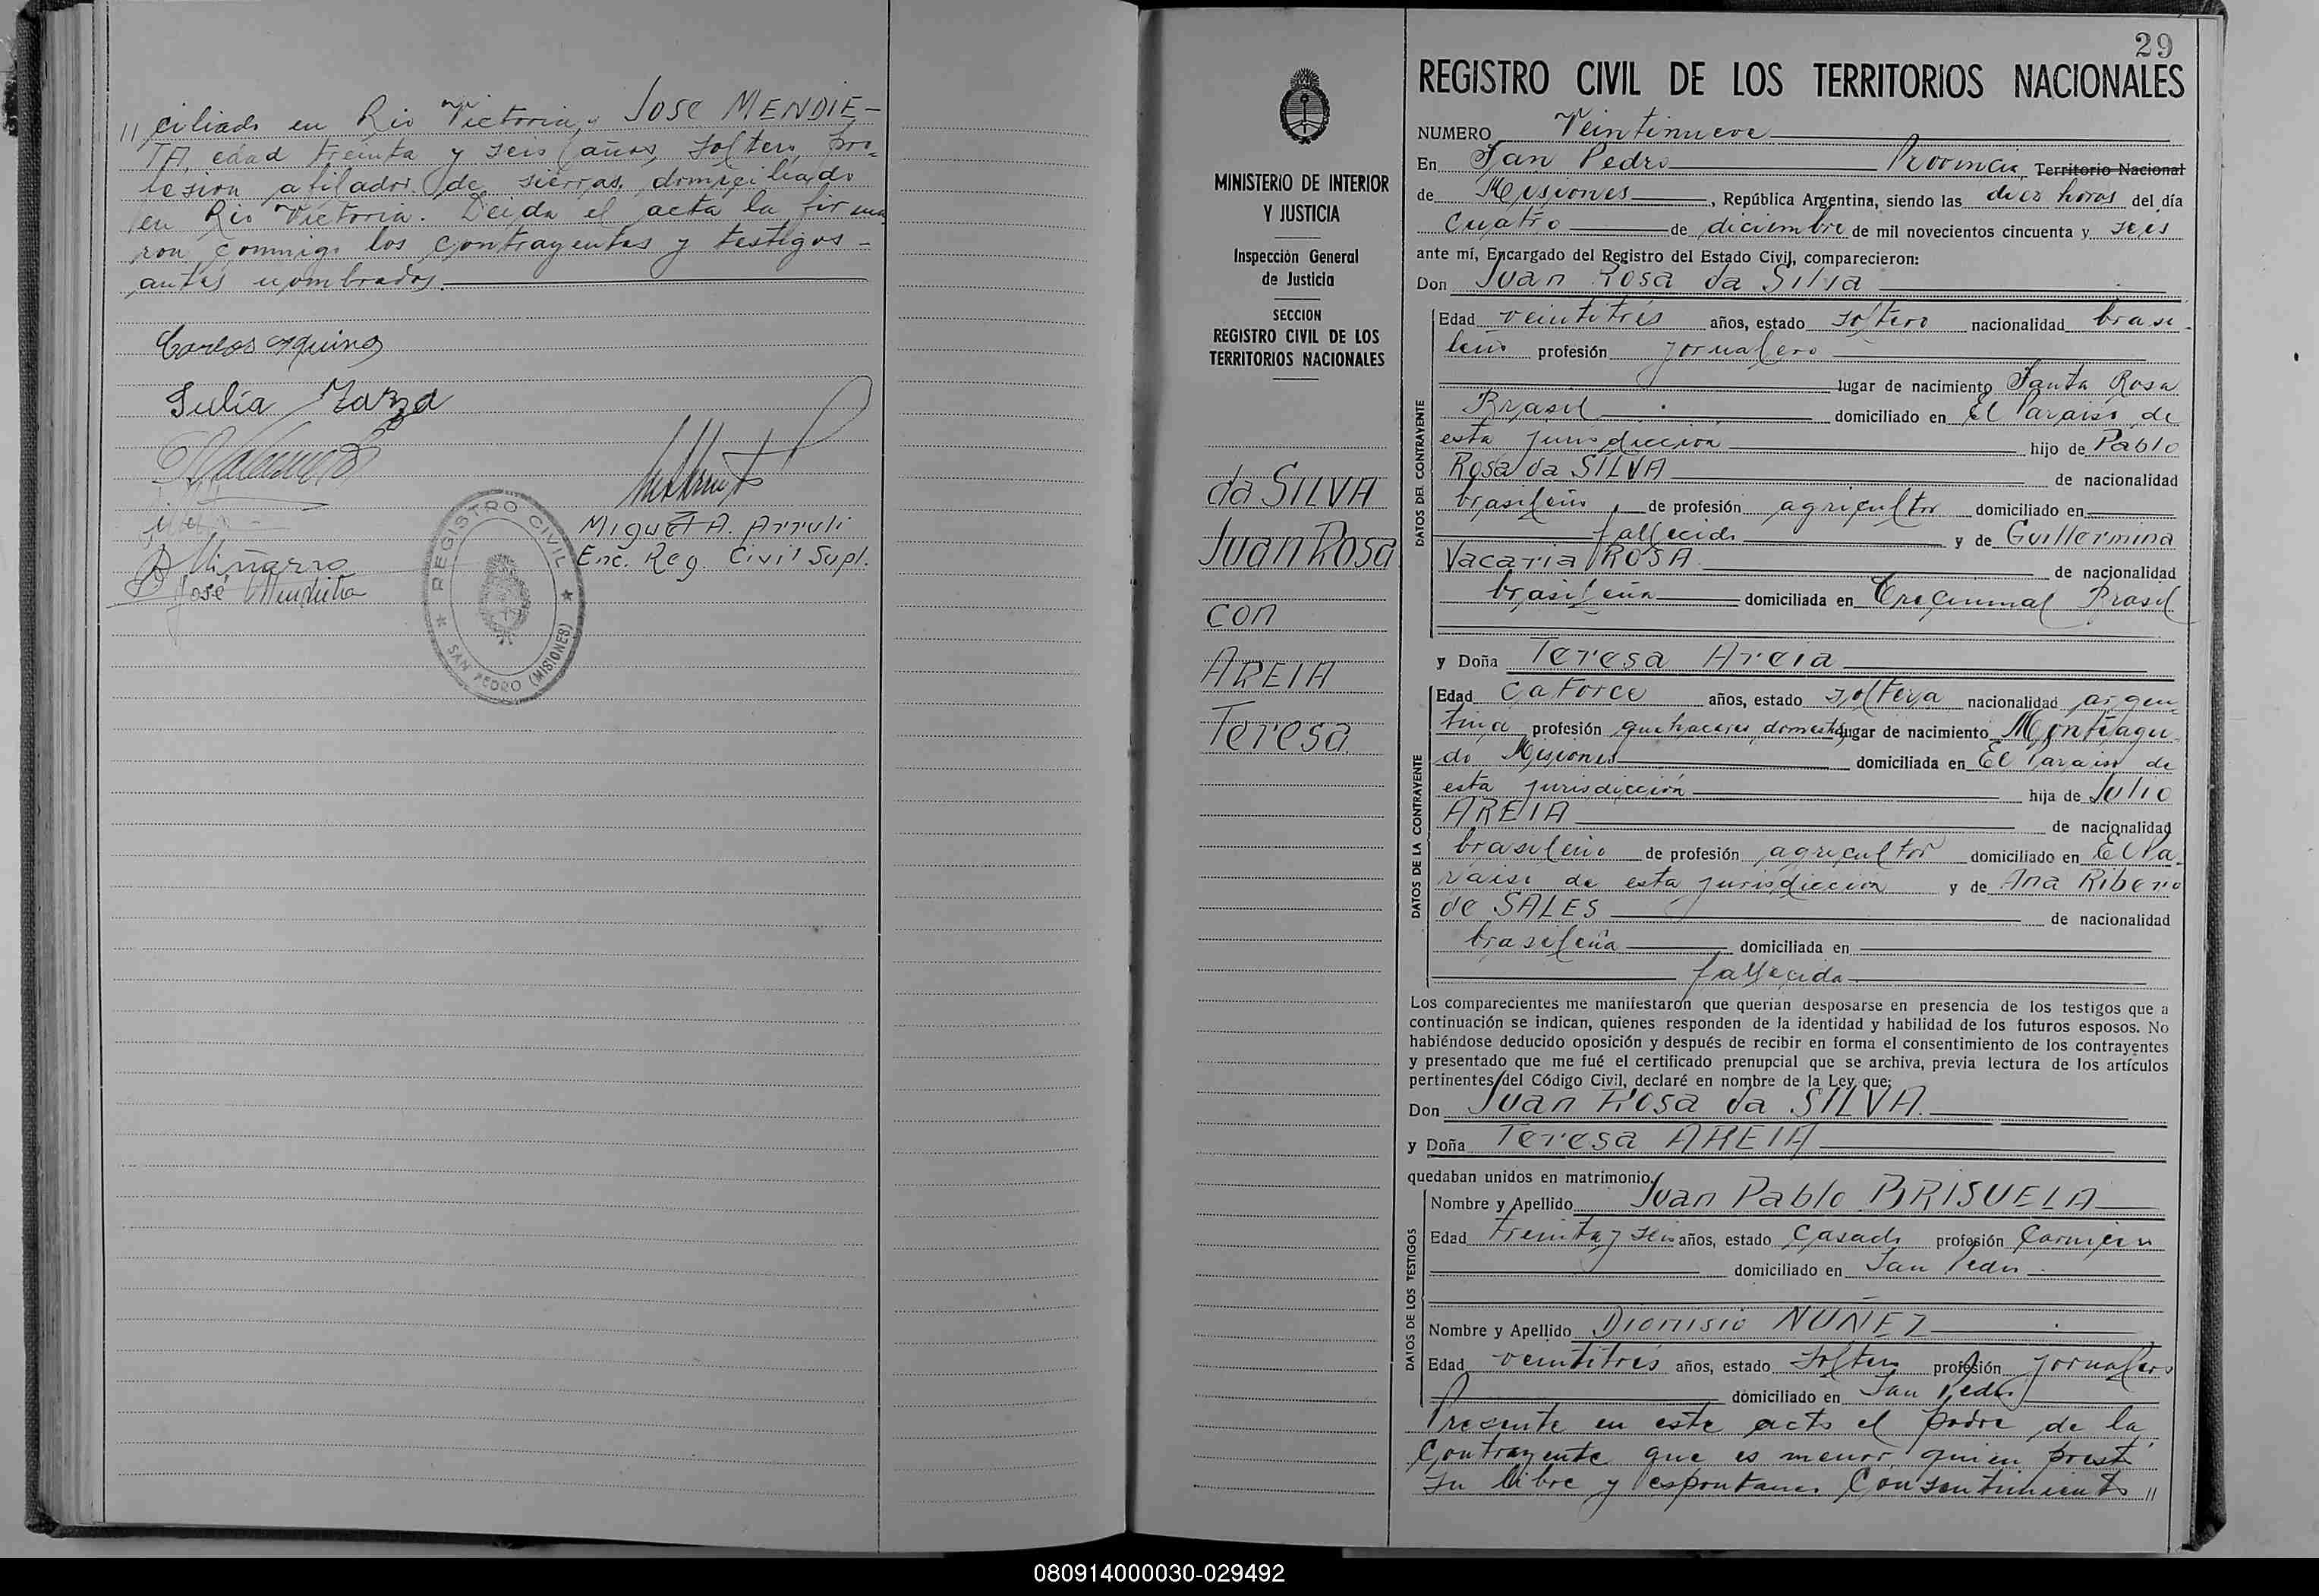 // ciliado en Rio Victoria, y JOSE MENDIE-
TA, edad treinta y seis años, soltero, pro-
fesion afilador de sierras, domiciliado
en Rio Victoria. Leida el acta la firma
ron conmigo los contrayentes y testigos -
antes nombrados.
Carlos Aquino
Julia
Miguel A. Arruli
Enc. Reg. Civil Supl.
A Miñarro
José Mendieta
REGISTRO CIVIL
SAN PEDRO (MISIONES)
MINISTERIO DE INTERIOR
Y JUSTICIA
Inspección General
de Justicia
SECCION
REGISTRO CIVIL DE LOS
TERRITORIOS NACIONALES
da SILVA
Juan Rosa
con
AREIA
Teresa
29
REGISTRO CIVIL DE LOS TERRITORIOS NACIONALES
NUMERO Veintinueve
En San Pedro Provincia Territorio Nacional
de Misiones, República Argentina, siendo las diez horas del día
cuatro de diciembre de mil novecientos cincuenta y seis
ante mí, Encargado del Registro del Estado Civil, comparecieron:
Don Juan Rosa da Silva
DATOS DEL CONTRAYENTE
Edad veintitrés años, estado soltero nacionalidad brasi-
leño profesión jornalero
lugar de nacimiento Santa Rosa
Brasil domiciliado en El Paraiso de
esta jurisdicción hijo de Pablo
Rosa da SILVA de nacionalidad
brasileño de profesión agricultor domiciliado en
fallecido y de Guillermina
Vacaria ROSA de nacionalidad
brasileña domiciliada en Brasil
y Doña Teresa Areia
DATOS DE LA CONTRAYENTE
Edad catorce años, estado soltera nacionalidad argen-
tina profesión quehaceres domest. lugar de nacimiento Montiagu-
do Misiones domiciliada en El Paraiso de
esta jurisdicción hija de Julio
AREIA de nacionalidad
brasileño de profesión agricultor domiciliado en El Pa-
raiso de esta jurisdicción y de Ana Ribero
de SALES de nacionalidad
brasileña domiciliada en
fallecida
Los comparecientes me manifestaron que querían desposarse en presencia de los testigos que a
continuación se indican, quienes responden de la identidad y habilidad de los futuros esposos. No
habiéndose deducido oposición y después de recibir en forma el consentimiento de los contrayentes
y presentado que me fué el certificado prenupcial que se archiva, previa lectura de los artículos
pertinentes del Código Civil, declaré en nombre de la Ley que:
Don Juan Rosa da SILVA
y Doña Teresa AREIA
quedaban unidos en matrimonio.
DATOS DE LOS TESTIGOS
Nombre y Apellido Juan Pablo BRISUELA
Edad treinta y seis años, estado casado profesión
domiciliado en San Pedro
Nombre y Apellido Dionisio NUÑEZ
Edad veintitres años, estado soltero profesión jornalero
domiciliado en San Pedro
Presente en este acto el padre de la
contrayente que es menor, quien prestó
su libre y espontaneo consentimiento //
080914000030-029492